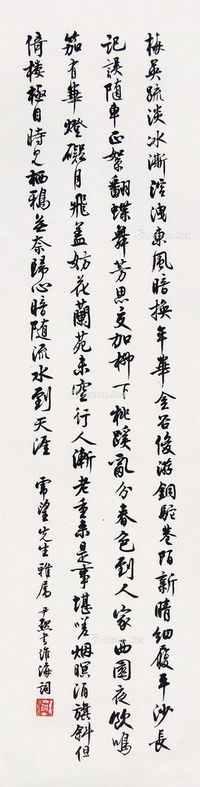 梅英疏淡冰澌溶洩東風暗換年華金谷俊游銅駝巷陌新晴細履平沙長
記誤隨車正絮翻蝶舞芳思交加柳下桃蹊亂分春色到人家西園夜飲鳴
笳有華燈礙月飛蓋妨花蘭苑未空行人漸老重來是事堪嗟烟暝酒旗斜但
倚樓極目時見栖鴉無奈歸心暗隨流水到天涯 望先生雅屬 尹默書淮海詞